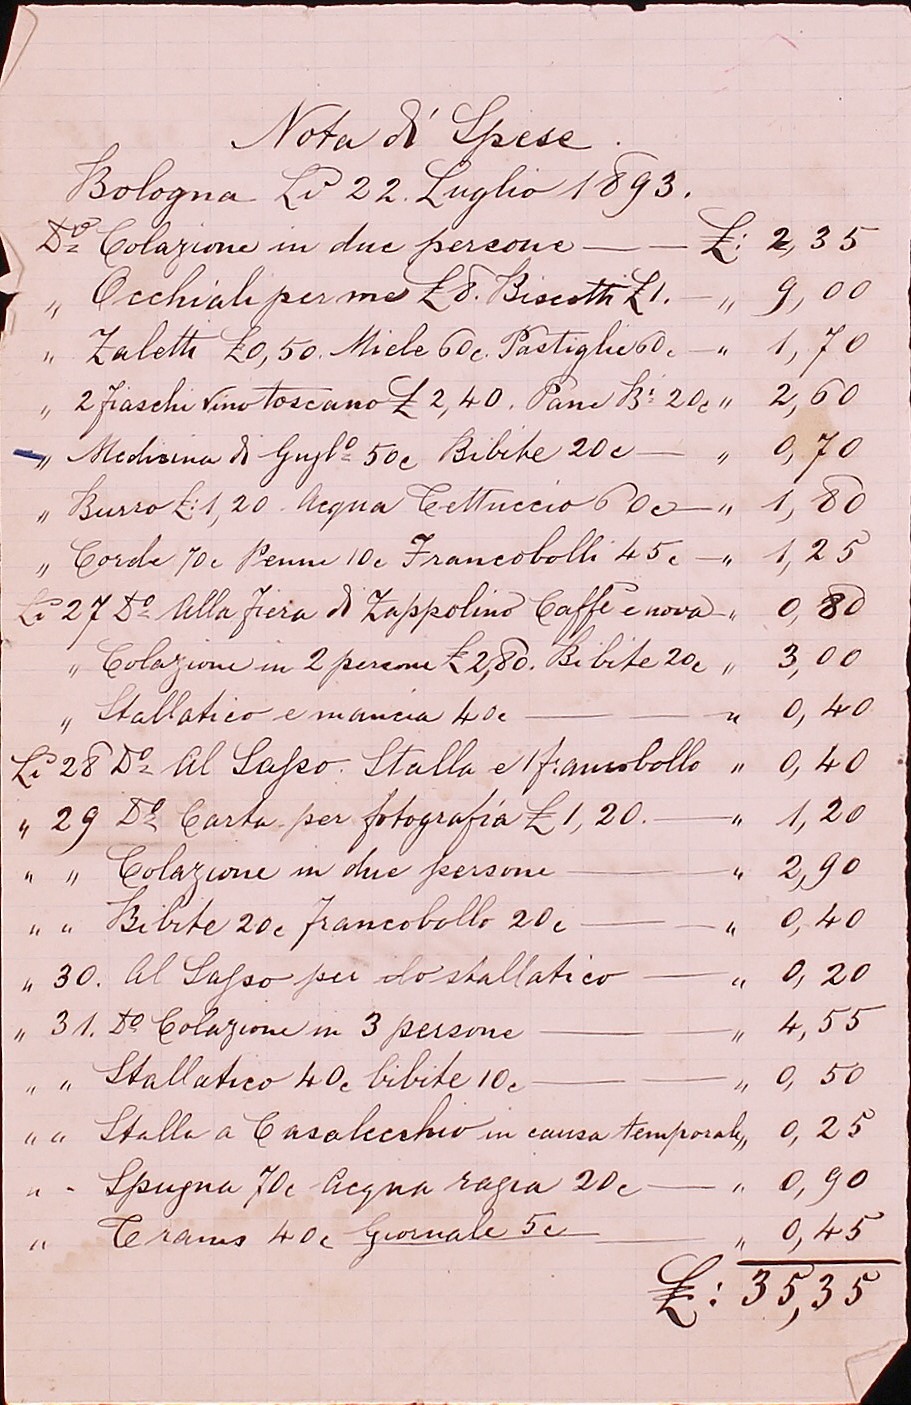 Nota di Spese.
Bologna Li 22. Luglio 1893.
Dº Colazione in due persone — — £: 2,35
„ Occhiali per me £8. Biscotti £1. — „ 9,00
„ Zaletti £0,50. Miele 60c. Pastiglie 60c — „ 1,70
„ 2 fiaschi vino toscano £ 2,40. Pane Bi: 20c „ 2,60
„ Medicina di Guglº 50c Bibite 20c — „ 0,70
„ Burro £:1,20. Acqua Tettuccio 60c — „ 1,80
„ Corde 70c Penne 10c Francobolli 45c — „ 1,25
Li 27 Dº Alla fiera di Zappolino Caffè e nova „ 0,80
„ Colazione in 2 persone £2,80. Bibite 20c „ 3,00
„ Stallatico e mancia 40c — — „ 0,40
Li 28 Dº Al Sasso. Stalla e 1 francobollo „ 0,40
„ 29 Dº Carta per fotografia £1,20. — „ 1,20
„ „ Colazione in due persone — — „ 2,90
„ „ Bibite 20c francobollo 20c — — „ 0,40
„ 30. Al Sasso per lo stallatico — „ 0,20
„ 31. Dº Colazione in 3 persone — — „ 4,55
„ „ Stallatico 40c bibite 10c — — „ 0,50
„ „ Stalla a Casalecchio in causa temporale „ 0,25
„ - Spugna 70c Acqua ragia 20c — „ 0,90
„ Trams 40c Giornale 5c — — „ 0,45
£: 35,35